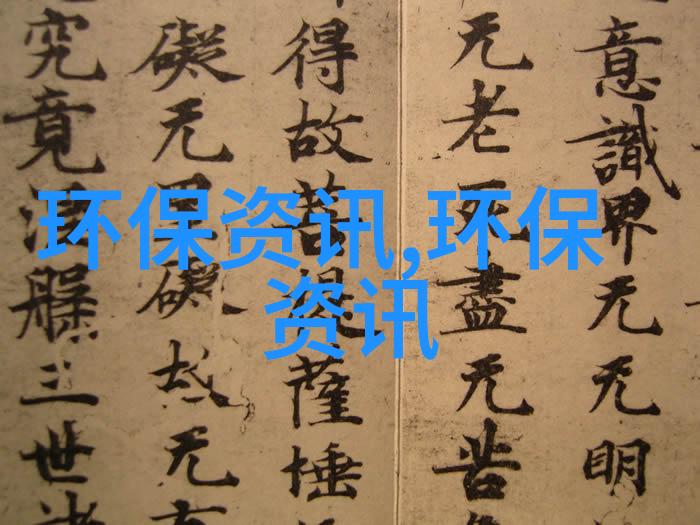 环保资讯,环保
资讯
意識界无无明
无老死盡无苦
得故菩提薩埵
礙无罣礙故无
究竟涅槃三世諸